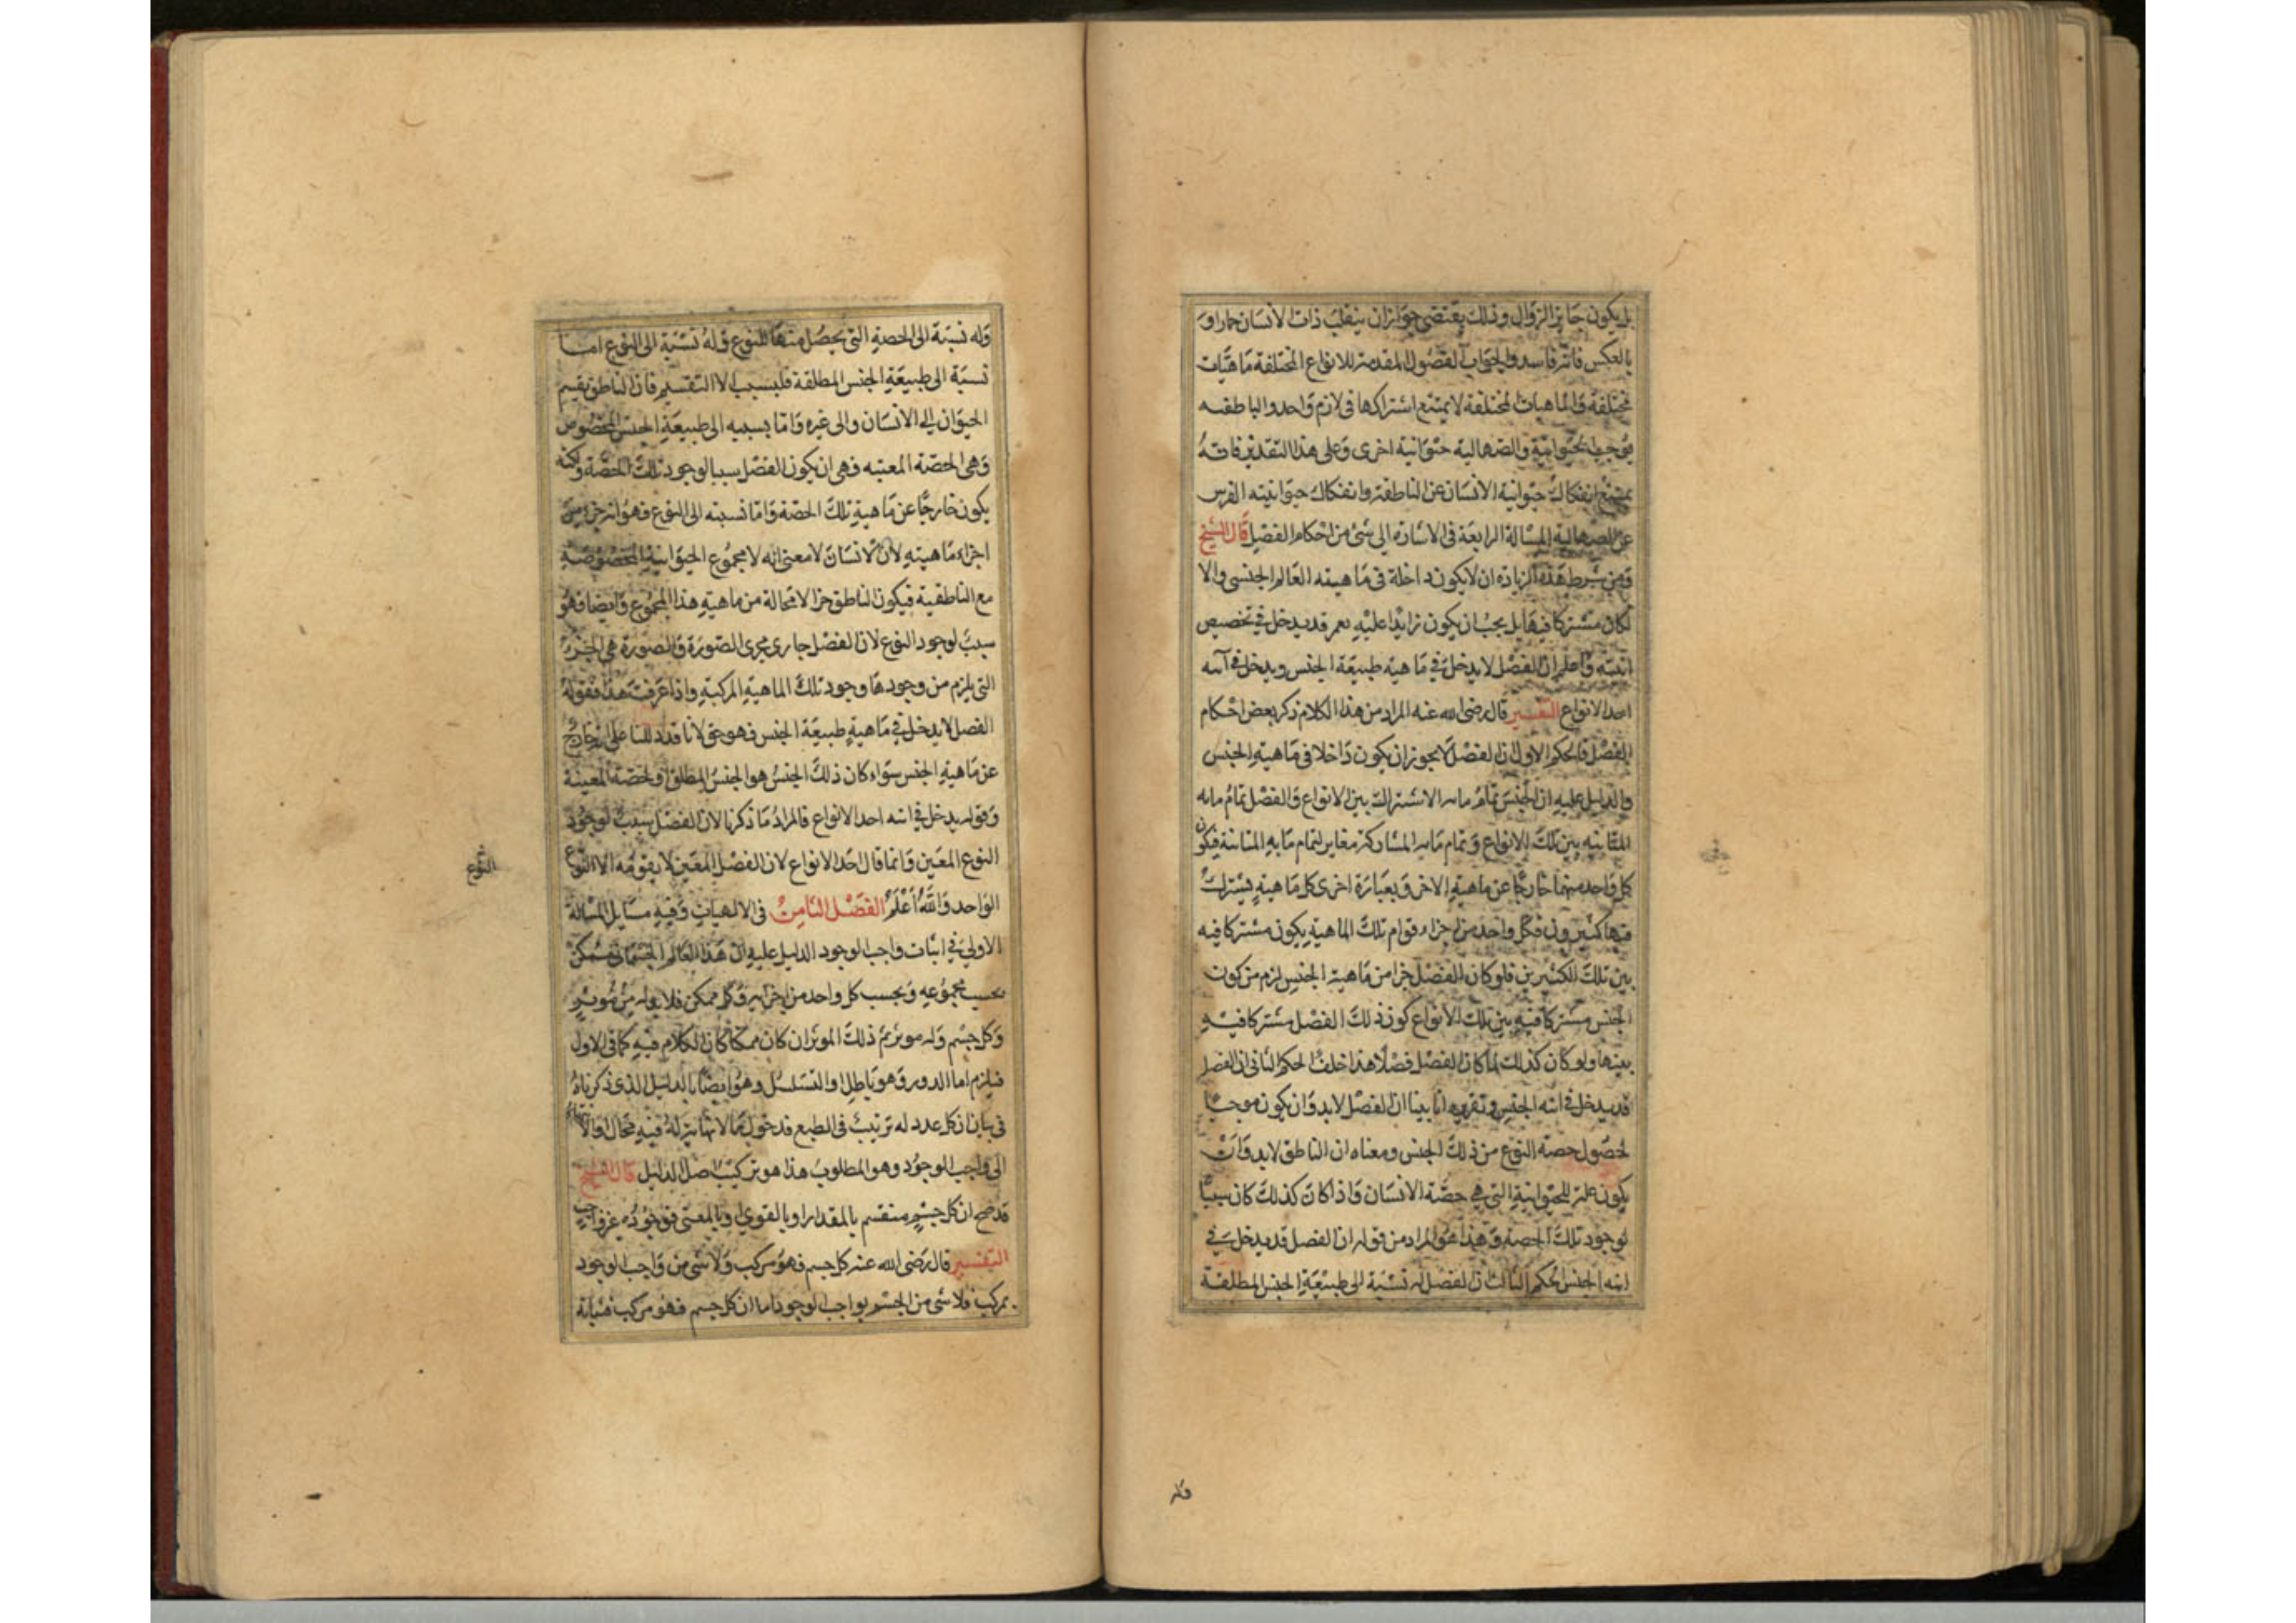 بل يكون جايز الزوال وذلك يقتضى جواز ان ينقلب ذات الانسان حمارا و
بالعكس فانه فاسد والجواب الفصول المقدمة للانواع المختلفة ماهيات
مختلفة والماهيات المختلفة لا يمتنع اشتراكها فى لازم واحد والناطقيه
يوجب حيوانية والصهالية حيوانية اخرى وعلى هذا التقدير فانه
يمتنع انفكاك حيوانية الانسان عن الناطقة وانفكاك حيوانيته الفرس
عن الصهالية المسالة الرابعة فى الاشاره الى شئ من احكام الفصل قال الشيخ
ومن شرط هذه الزيادة ان لا يكون داخلة فى ماهيته العالم الجنسى والا
لكان مشتركا فيها بل يجب ان يكون زايدا عليه نعم قد يدخل فى تخصيص
انيته واعلم ان الفصل لا يدخل فى ماهية طبيعة الجنس ويدخل فى آنيه
احد الانواع التفسير قال رضى الله عنه المراد من هذا الكلام ذكر بعض احكام
الفصل فالحكم الاول ان الفصل لا يجوز ان يكون داخلا فى ماهية الجنس
والدليل عليه ان الجنس تمام مابه الاشتراك بين الانواع والفصل تمام مابه
المتاينه بين تلك الانواع وتمام مابه المشاركة مغاير لتمام مابه المتاينة فيكون
كل واحد منهما خارجا عن ماهية الاخر وبعبارة اخرى كل ماهية يشترك
فيها كثيرون فكل واحد من اجزاء قوام تلك الماهية يكون مشتركا فيه
بين تلك الكثيرين فلو كان الفصل جزا من ماهية الجنس لزم من كون
الجنس مشتركا فيه بين تلك الانواع كون ذلك الفصل مشتركا فيه
بينها ولو كان كذلك لما كان الفصل فصلا هذا خلف الحكم الثانى ان الفصل
قد يدخل فى انيه الجنس وتقريره انا بينا ان الفصل لا بد وان يكون موجبا
لحصول حصة النوع من ذلك الجنس ومعناه ان الناطق لا بد وان
يكون علة للحيوانية التى هى حصة الانسان واذا كان كذلك كان سببا
لوجود تلك الحصة وهذا هو المراد من قوله ان الفصل قد يدخل فى
انيه الجنس الحكم الثالث ان الفصل له نسبة الى طبيعة الجنس المطلقة
وله
وله نسبة الى الحصة التى يحصل منها للنوع وله نسبة الى النوع اما
نسبة الى طبيعة الجنس المطلقة فليست الا التقسيم فان الناطق يقسم
الحيوان الى الانسان والى غيره واما نسبته الى طبيعة الجنس المخصوص
وهى الحصة المعينه فهى ان يكون الفصل سببا لوجود تلك الحصة ولكنه
يكون خارجا عن ماهية تلك الحصة واما نسبته الى النوع فهو انه جزء من
اجزاء ماهيته لان الانسان لا معنى له الا مجموع الحيوانية المخصوصة
مع الناطقية فيكون الناطق جزا لا محالة من ماهية هذا المجموع وايضا فهو
سبب لوجود النوع لان الفصل جارى مجرى الصورة والصورة هى الجزء
التى يلزم من وجودها وجود تلك الماهية المركبة واذا عرفت هذا فقوله
الفصل لا يدخل فى ماهية طبيعة الجنس فهو حق لانا قد دللنا على انه خارج
عن ماهية الجنس سواء كان ذلك الجنس هو الجنس المطلق او الحصة المعينة
وقوله يدخل فى انيه احد الانواع فالمراد ما ذكرنا لان الفصل سبب لوجود
النوع المعين وانما قال احد الانواع لان الفصل المعين لا يقومه الا النوع
النوع
الواحد والله اعلم الفصل الثامن فى الالهيات وفيه مسايل المسالة
الاولى فى اثبات واجب الوجود الدليل عليه ان هذا العالم الجسمانى ممكن
بحسب مجموعه وبحسب كل واحد من اجزايه وكل ممكن فلا بد له من مؤثر
وكل جسم وله موثر ثم ذلك الموثر ان كان ممكنا كان الكلام فيه كما فى الاول
فيلزم اما الدور وهو باطل او التسلسل وهو ايضا بالدليل الذى ذكرناه
فى بيان ان كل عدد له ترتيب فى الطبع فدخول ما لا نهاية له فيه محال او الانتهاء
الى واجب الوجود وهو المطلوب هذا هو تركيب اصل الدليل قال الشيخ
قد صح ان كل جسم منقسم بالمقدار او بالقوى او بالمعنى فوجوده غير واجب
التفسير قال رضى الله عنه كل جسم فهو مركب ولا شى من واجب الوجود
بمركب فلا شى من الجسم بواجب الوجود اما ان كل جسم فهو مركب فبيانه